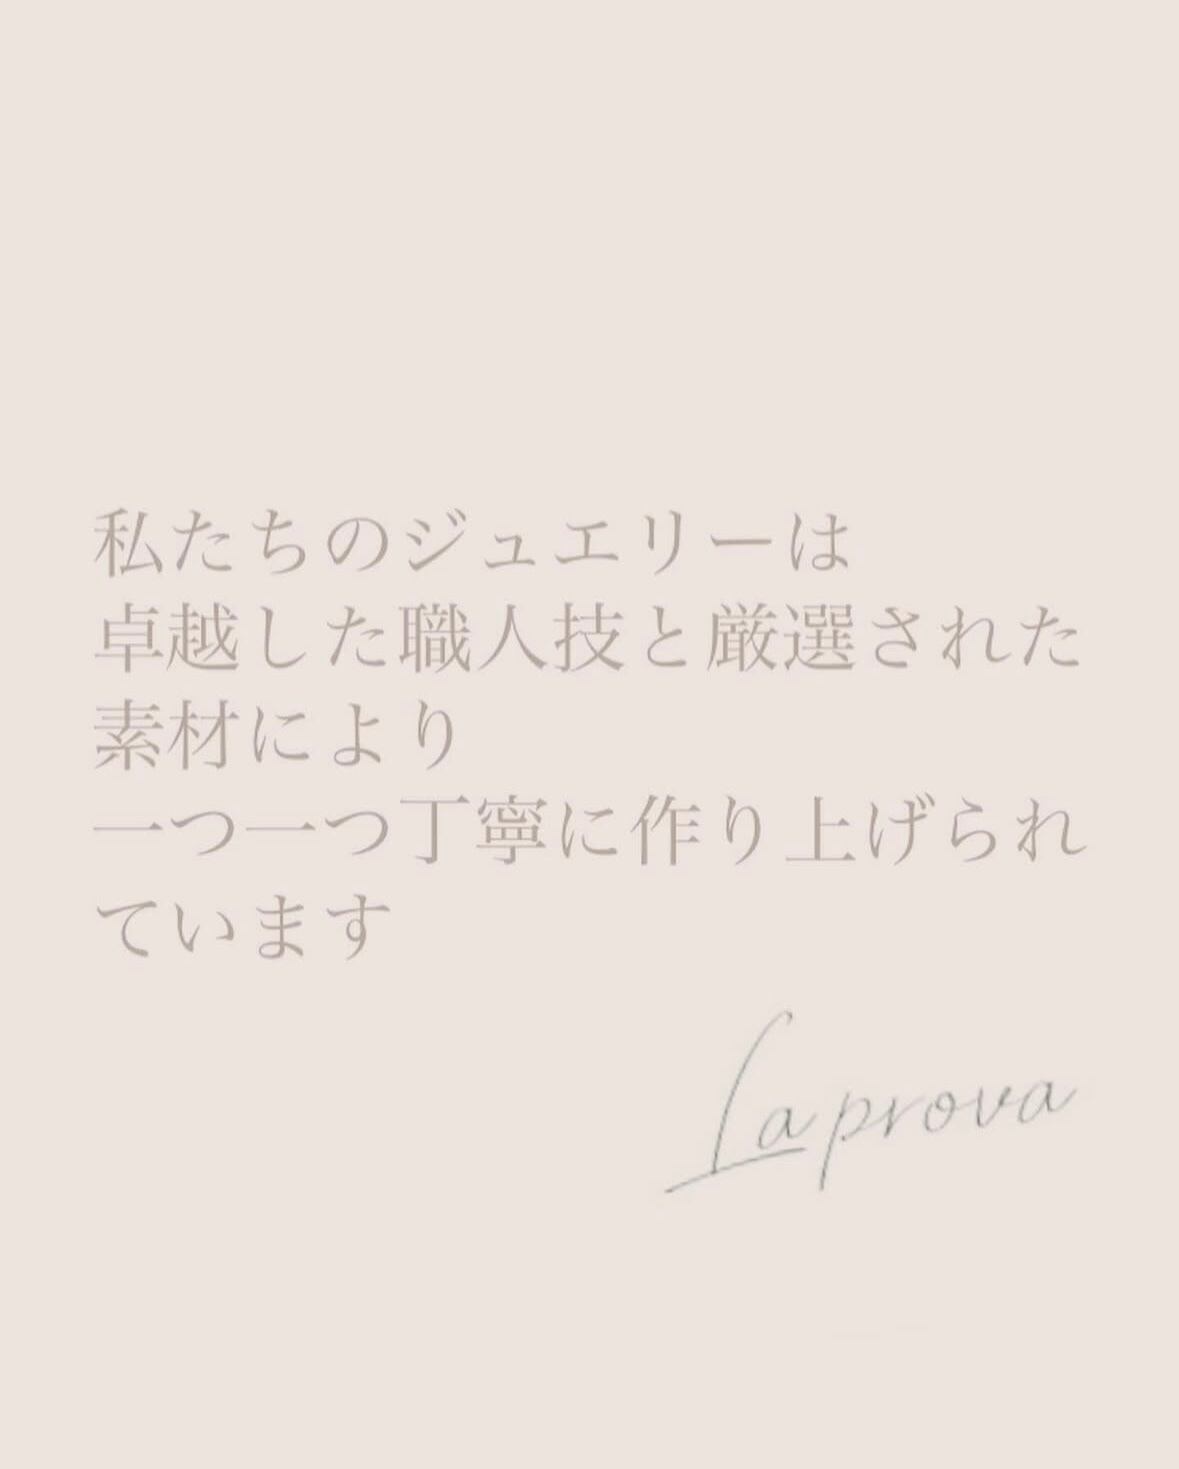 私たちのジュエリーは
卓越した職人技と厳選された
素材により
一つ一つ丁寧に作り上げられ
ています
Laprova